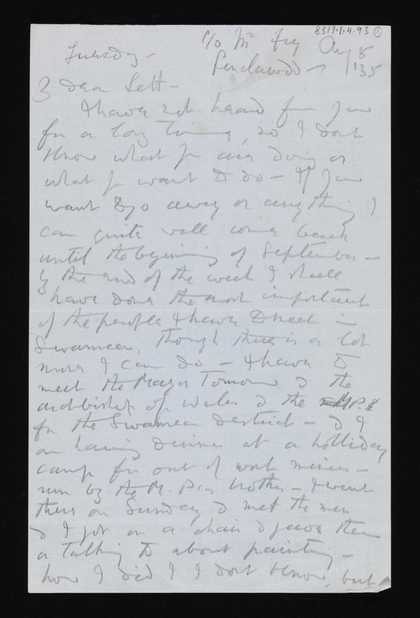 8317.1.4.93 ①
c/o Mrs Fry Aug 8
Tuesday - Penclawdd - /'35
My dear Sett -
I have not heard from you
for a long time, so I dont
know what you are doing or
what you want to do - If you
want to go away or anything I
can quite well come back
until the beginning of September -
By the end of the week I shall
have done the most important
of the people I have to see in
Swansea, though there is a lot
more I can do - I have to
meet the Mayor Tomorrow & the
archbishop of Wales & the M.P.s
for the Swansea District - & I
am having dinner at a holliday
camp for out of work miners -
run by the M. brother - I went
there on Sunday & met the men
& I got on a chair & gave them
a talking to about painting -
how I did I I dont know, but